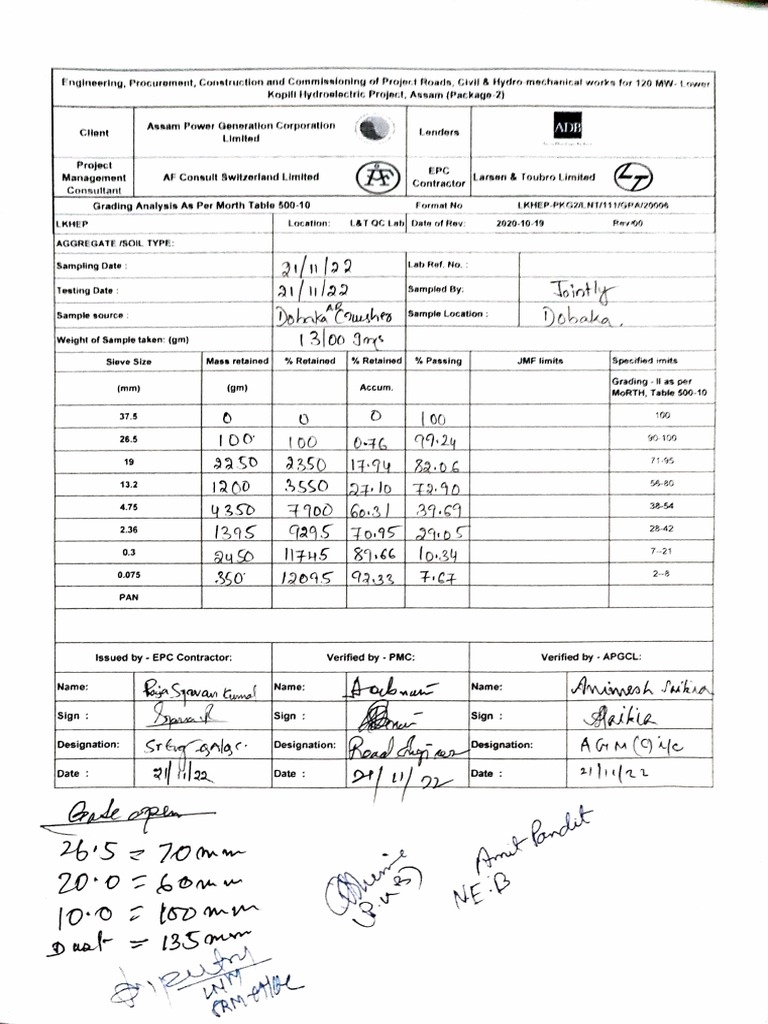 Engineering, Procurement, Construction and Commissioning of Project Roads, Civil & Hydro mechanical works for 120 MW- Lower
Kopili Hydroelectric Project, Assam (Package-2)
Client Assam Power Generation Corporation Limited Lenders ADB
Project Management Consultant AF Consult Switzerland Limited AF EPC Contractor Larsen & Toubro Limited LT
Grading Analysis As Per Morth Table 500-10 Format No LKHEP-PKG2/LNT/111/GPA/20006
LKHEP Location: L&T QC Lab Date of Rev: 2020-10-19 Rev:00
AGGREGATE /SOIL TYPE:
Sampling Date : 21/11/22 Lab Ref. No. :
Testing Date : 21/11/22 Sampled By: Jointly
Sample source : Dobaka Crusher Sample Location : Dobaka.
Weight of Sample taken: (gm) 13100 gms
Sieve Size Mass retained % Retained % Retained % Passing JMF limits Specified limits
(mm) (gm) Accum. Grading - II as per MoRTH, Table 500-10
37.5 0 0 0 100 100
26.5 100 100 0.76 99.24 90-100
19 2250 2350 17.94 82.06 71-95
13.2 1200 3550 27.10 72.90 56-80
4.75 4350 7900 60.31 39.69 38-54
2.36 1395 9295 70.95 29.05 28-42
0.3 2450 11745 89.66 10.34 7--21
0.075 350 12095 92.33 7.67 2--8
PAN
Issued by - EPC Contractor: Verified by - PMC: Verified by - APGCL:
Name: Raja Sravan Kumar Name: Name: Animesh Saikia
Sign : Sign : Sign : Saikia
Designation: Designation: Road Engineer Designation: AGM (C) i/c
Date : 21/11/22 Date : 21/11/22 Date : 21/11/22
Gate open
26.5 = 70 mm
20.0 = 60 mm
10.0 = 100 mm
Dust = 135 mm
Amit Pandit
NE:B